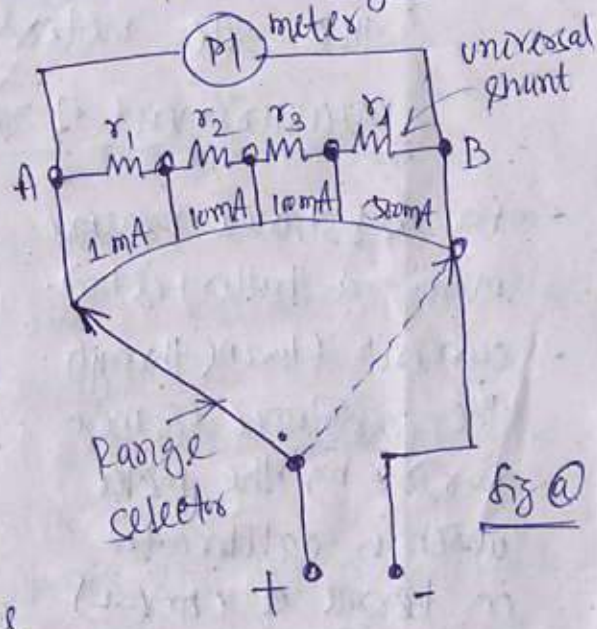 PI meter
universal
shunt
r1 r2 r3 r4
A B
1mA 10mA 100mA 500mA
Range
selector
fig a
+ -